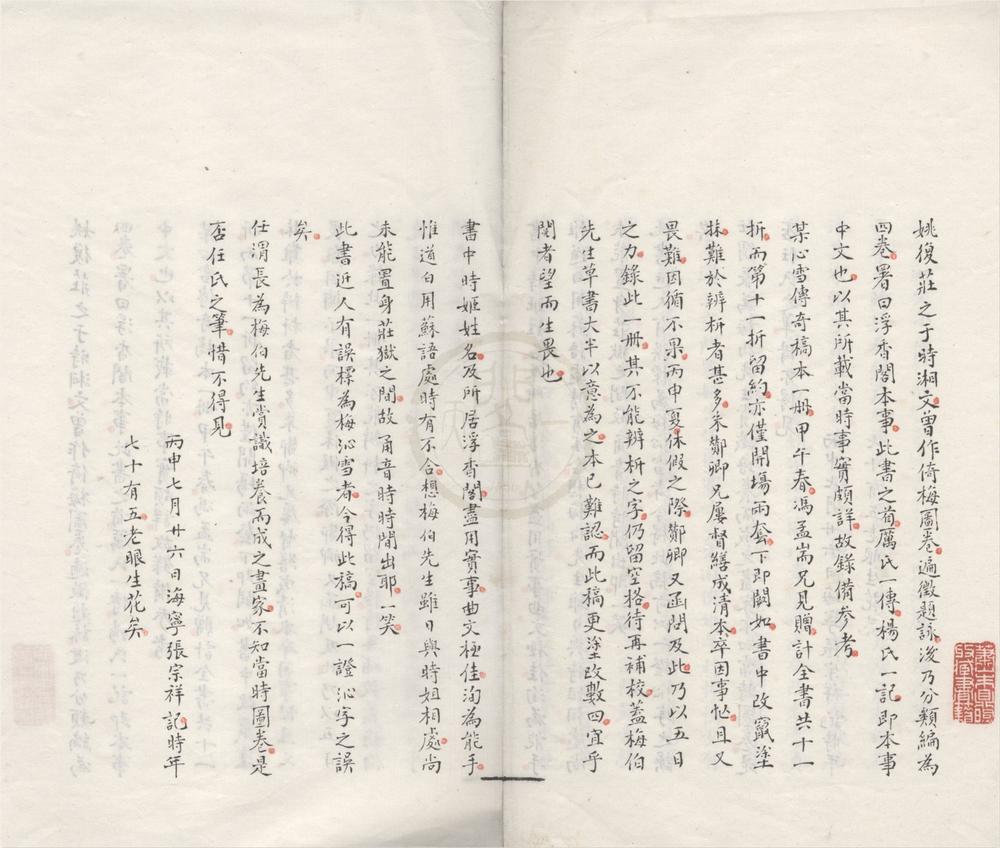 姚復莊之于時湘文曾作倚梅圖卷遍徵題詠後乃分類編為
四卷署曰浮香閣本事此書之首厲氏一傳楊氏一記即本事
中文也以其所載當時事實頗詳故錄備參考
某心雪傳奇稿本一冊甲午春馮孟耑兄見贈計全書共十一
折而第十一折留約亦僅開場兩套下即闕如書中改竄塗
抹難於辨析者甚多朱酇卿兄屢督繕成清本卒因事忙且又
畏難因循不果丙申夏休假之際酇卿又函問及此乃以五日
之力錄此一冊其不能辨析之字仍留空格待再補校蓋梅伯
先生草書大半以意為之本已難認而此稿更塗改數四宜乎
閱者望而生畏也
書中時姬姓名及所居浮香閣盡用實事曲文極佳洵為能手
惟道白用蘇語處時有不合想梅伯先生雖日與時姐相處尚
未能置身莊獄之間故甬音時時閒出耶一笑
此書近人有誤標為梅沁雪者今得此稿可以一證沁字之誤
矣
任渭長為梅伯先生賞識培養而成之畫家不知當時圖卷是
否任氏之筆惜不得見
丙申七月廿六日海寧張宗祥記時年
七十有五老眼生花矣